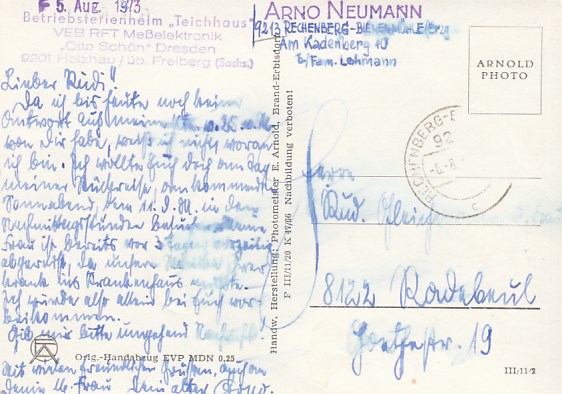 F 5. AUG. 1973
Betriebsferienheim „Teichhaus"
VEB RFT Meßelektronik
„Otto Schön" Dresden
9201 Holzhau/üb. Freiberg (Sachs.)
ARNO NEUMANN
9212 RECHENBERG-BIENENMÜHLE/Erzg
Am Kadenberg 10
b/Fam. Lehmann
ARNOLD
PHOTO
Lieber Rudi!
Da ich bis heute noch keine
Antwort auf meine
von Dir habe, weiß ich nicht, woran
ich bin. Ich wollte Euch doch am Tag
meiner Rückreise, am kommenden
Sonnabend, dem 11. d. M. in den
Nachmittagsstunden besuchen. Meine
Frau ist bereits vor 3 Tagen vorzeitig
abgereist, da unsere
krank ins Krankenhaus
Ich würde also allein bei Euch vor-
beikommen.
Gib mir bitte umgehend Nachricht!
Mit vielen freundlichen Grüßen, auch an
Deine lb. Frau Dein alter
Orig.-Handabzug EVP MDN 0,25
Handw. Herstellung: Photomeister E. Arnold, Brand-Erbisdorf
F III/11/20 K 47/66 Nachbildung verboten!
RECHENBERG-B
92
c
Herrn
Rud.
8122 Radebeul
Goethestr. 19
III/11/2